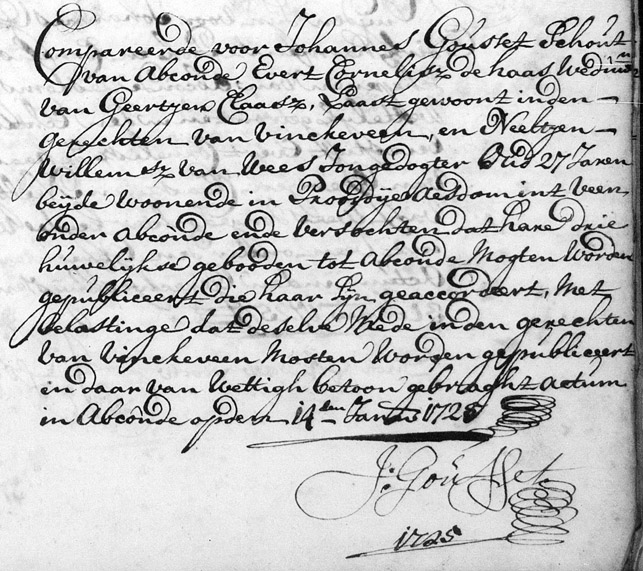 Compareerde voor Johannes Gousset Schout
van Abcoude Evert Cornelisz de haas Wedunr
van Geertjen Claasz, Laast gewoont inden
gerechten van Vinckeveen, en Neeltjen
Willemsz van Wees Jongedogter Oud 27 Jaren
beijde Woonende in Proosdije Aesdom int veen
onder Abcoude ende Versochten dat hare drie
huwelijkse gebooden tot Abcoude Mogten Worden
gepubliceert die haar sijn geaccordeert, Met
belastinge dat deselve Mede inden gerechten
van Vinckeveen Mosten Worden gepubliceert
en daar van Wettigh betoon gebraght Actum
in Abcoude opden 14den Janu 1725
J: Gousset.
1725